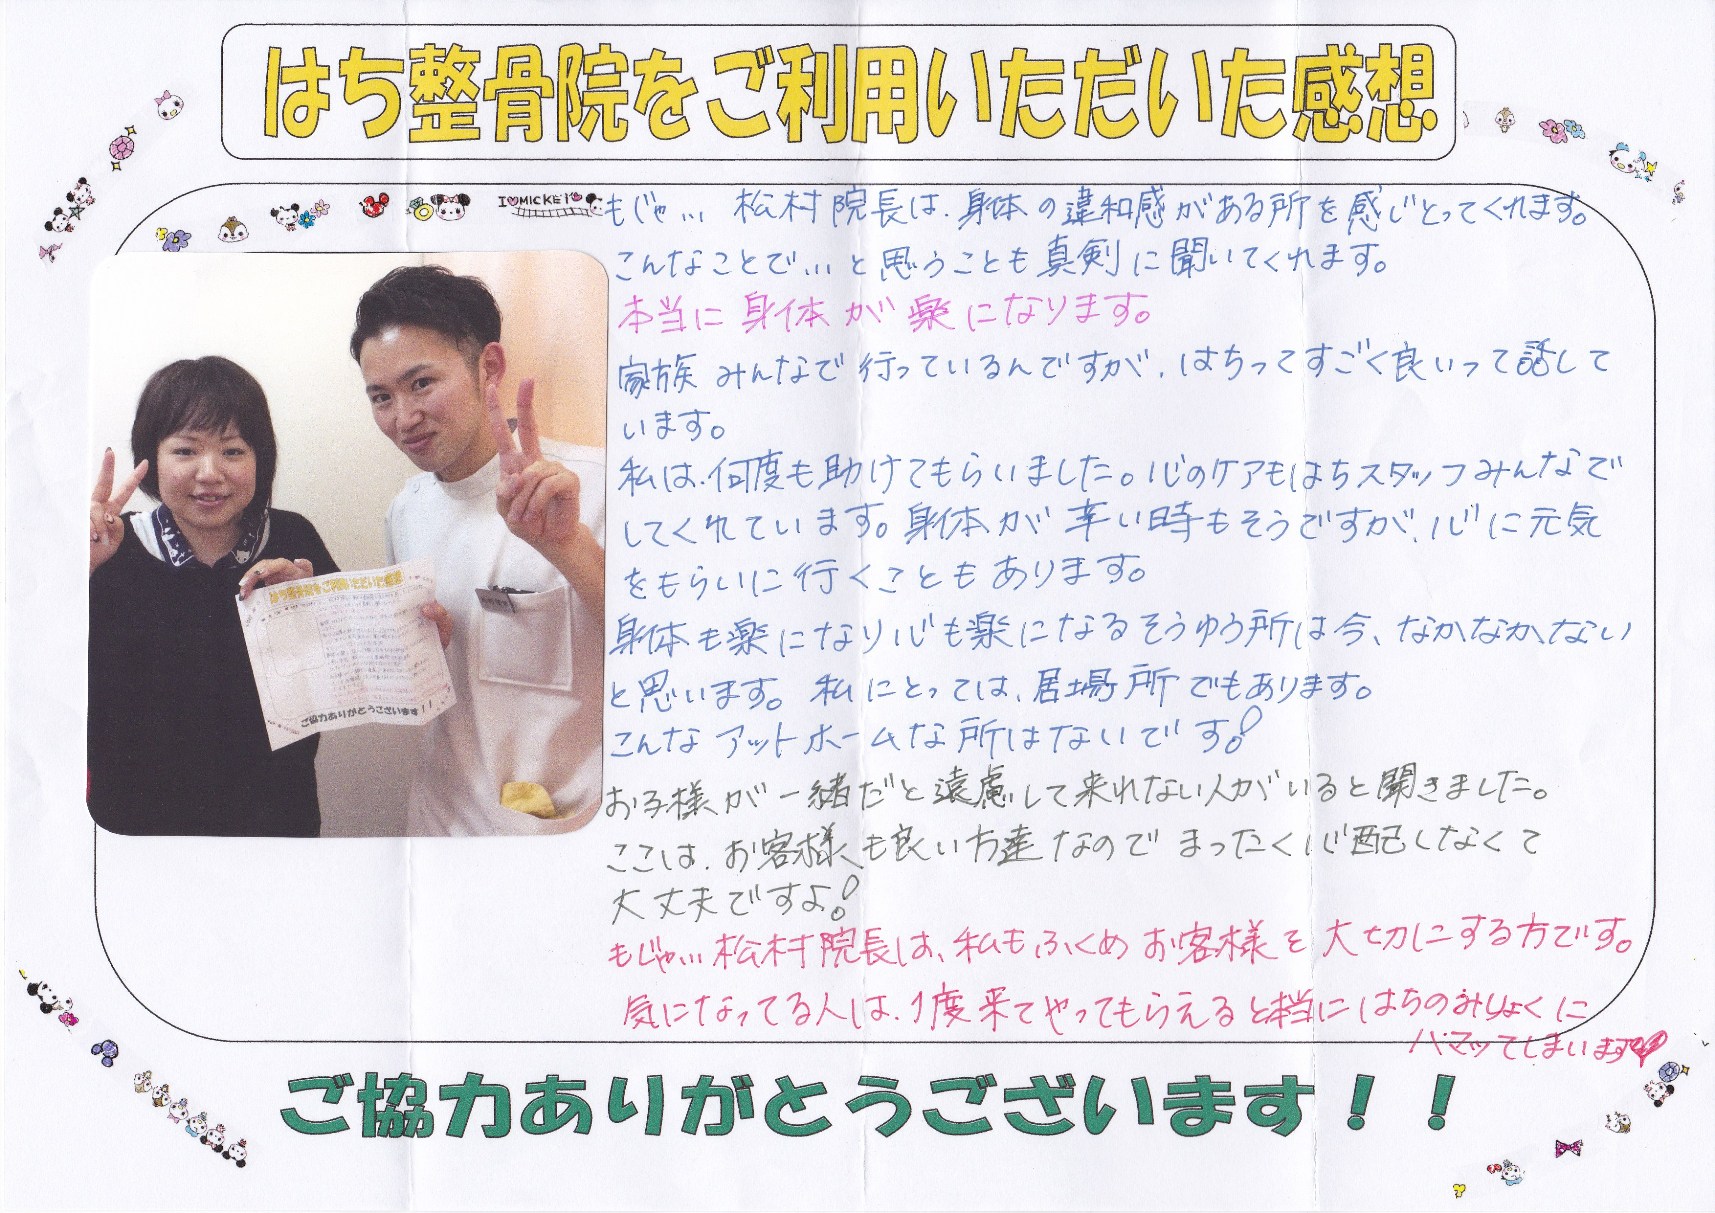 はち整骨院をご利用いただいた感想
I♥MICKEY
もじゃ… 松村院長は、身体の違和感がある所を感じとってくれます。
こんなことで…と思うことも真剣に聞いてくれます。
本当に身体が楽になります。
家族みんなで行っているんですが、はちってすごく良いって話して
います。
私は、何度も助けてもらいました。心のケアもはちスタッフみんなで
してくれています。身体が辛い時もそうですが、心に元気
をもらいに行くこともあります。
身体も楽になり心も楽になるそうゆう所は今、なかなかない
と思います。私にとっては、居場所でもあります。
こんなアットホームな所はないです!
お子様が一緒だと遠慮して来れない人がいると聞きました。
ここは、お客様も良い方達なのでまったく心配しなくて
大丈夫ですよ!
もじゃ…松村院長は、私もふくめお客様を大切にする方です。
気になってる人は、1度来てやってもらえると本当にはちのみりょくに
ハマッてしまいます♥
はち整骨院をご利用いただいた感想
ご協力ありがとうございます!!
ご協力ありがとうございます!!